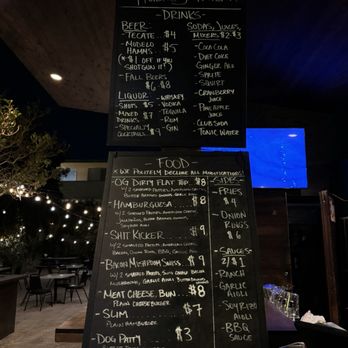 - DRINKS -
BEER:
TECATE - $4
MODELO
HAMMS - $5
(*$1 OFF IF YOU
SHOTGUN IT!)
- FALL BEERS
$6 $8
LIQUOR
SHOTS $5
MIXED DRINKS $7
SPECIALTY
COCKTAILS $9
- WHISKEY
- VODKA
- TEQUILA
- RUM
- GIN
SODAS, JUICES,
MIXERS $2-$3
- COCA COLA
- DIET COKE
- GINGER ALE
- SPRITE
- SQUIRT
- CRANBERRY
JUICE
- PINEAPPLE
JUICE
- CLUB SODA
- TONIC WATER
- FOOD -
* WE POLITELY DECLINE ALL MODIFICATIONS!
- OG DIRTY FLAT TOP. $8
- HAMBURGUESA $8
- SHIT KICKER $9
- BACON MUSHROOM SWISS $9
- MEAT CHEESE BUN $8
PLAIN CHEESEBURGER
- SLIM $7
PLAIN HAMBURGER
- DOG PATTY $3
- SIDES -
- FRIES
$4
- ONION
RINGS
$6
- SAUCES
2/$1
- RANCH
- GARLIC
AIOLI
- AIOLI
- BBQ
SAUCE